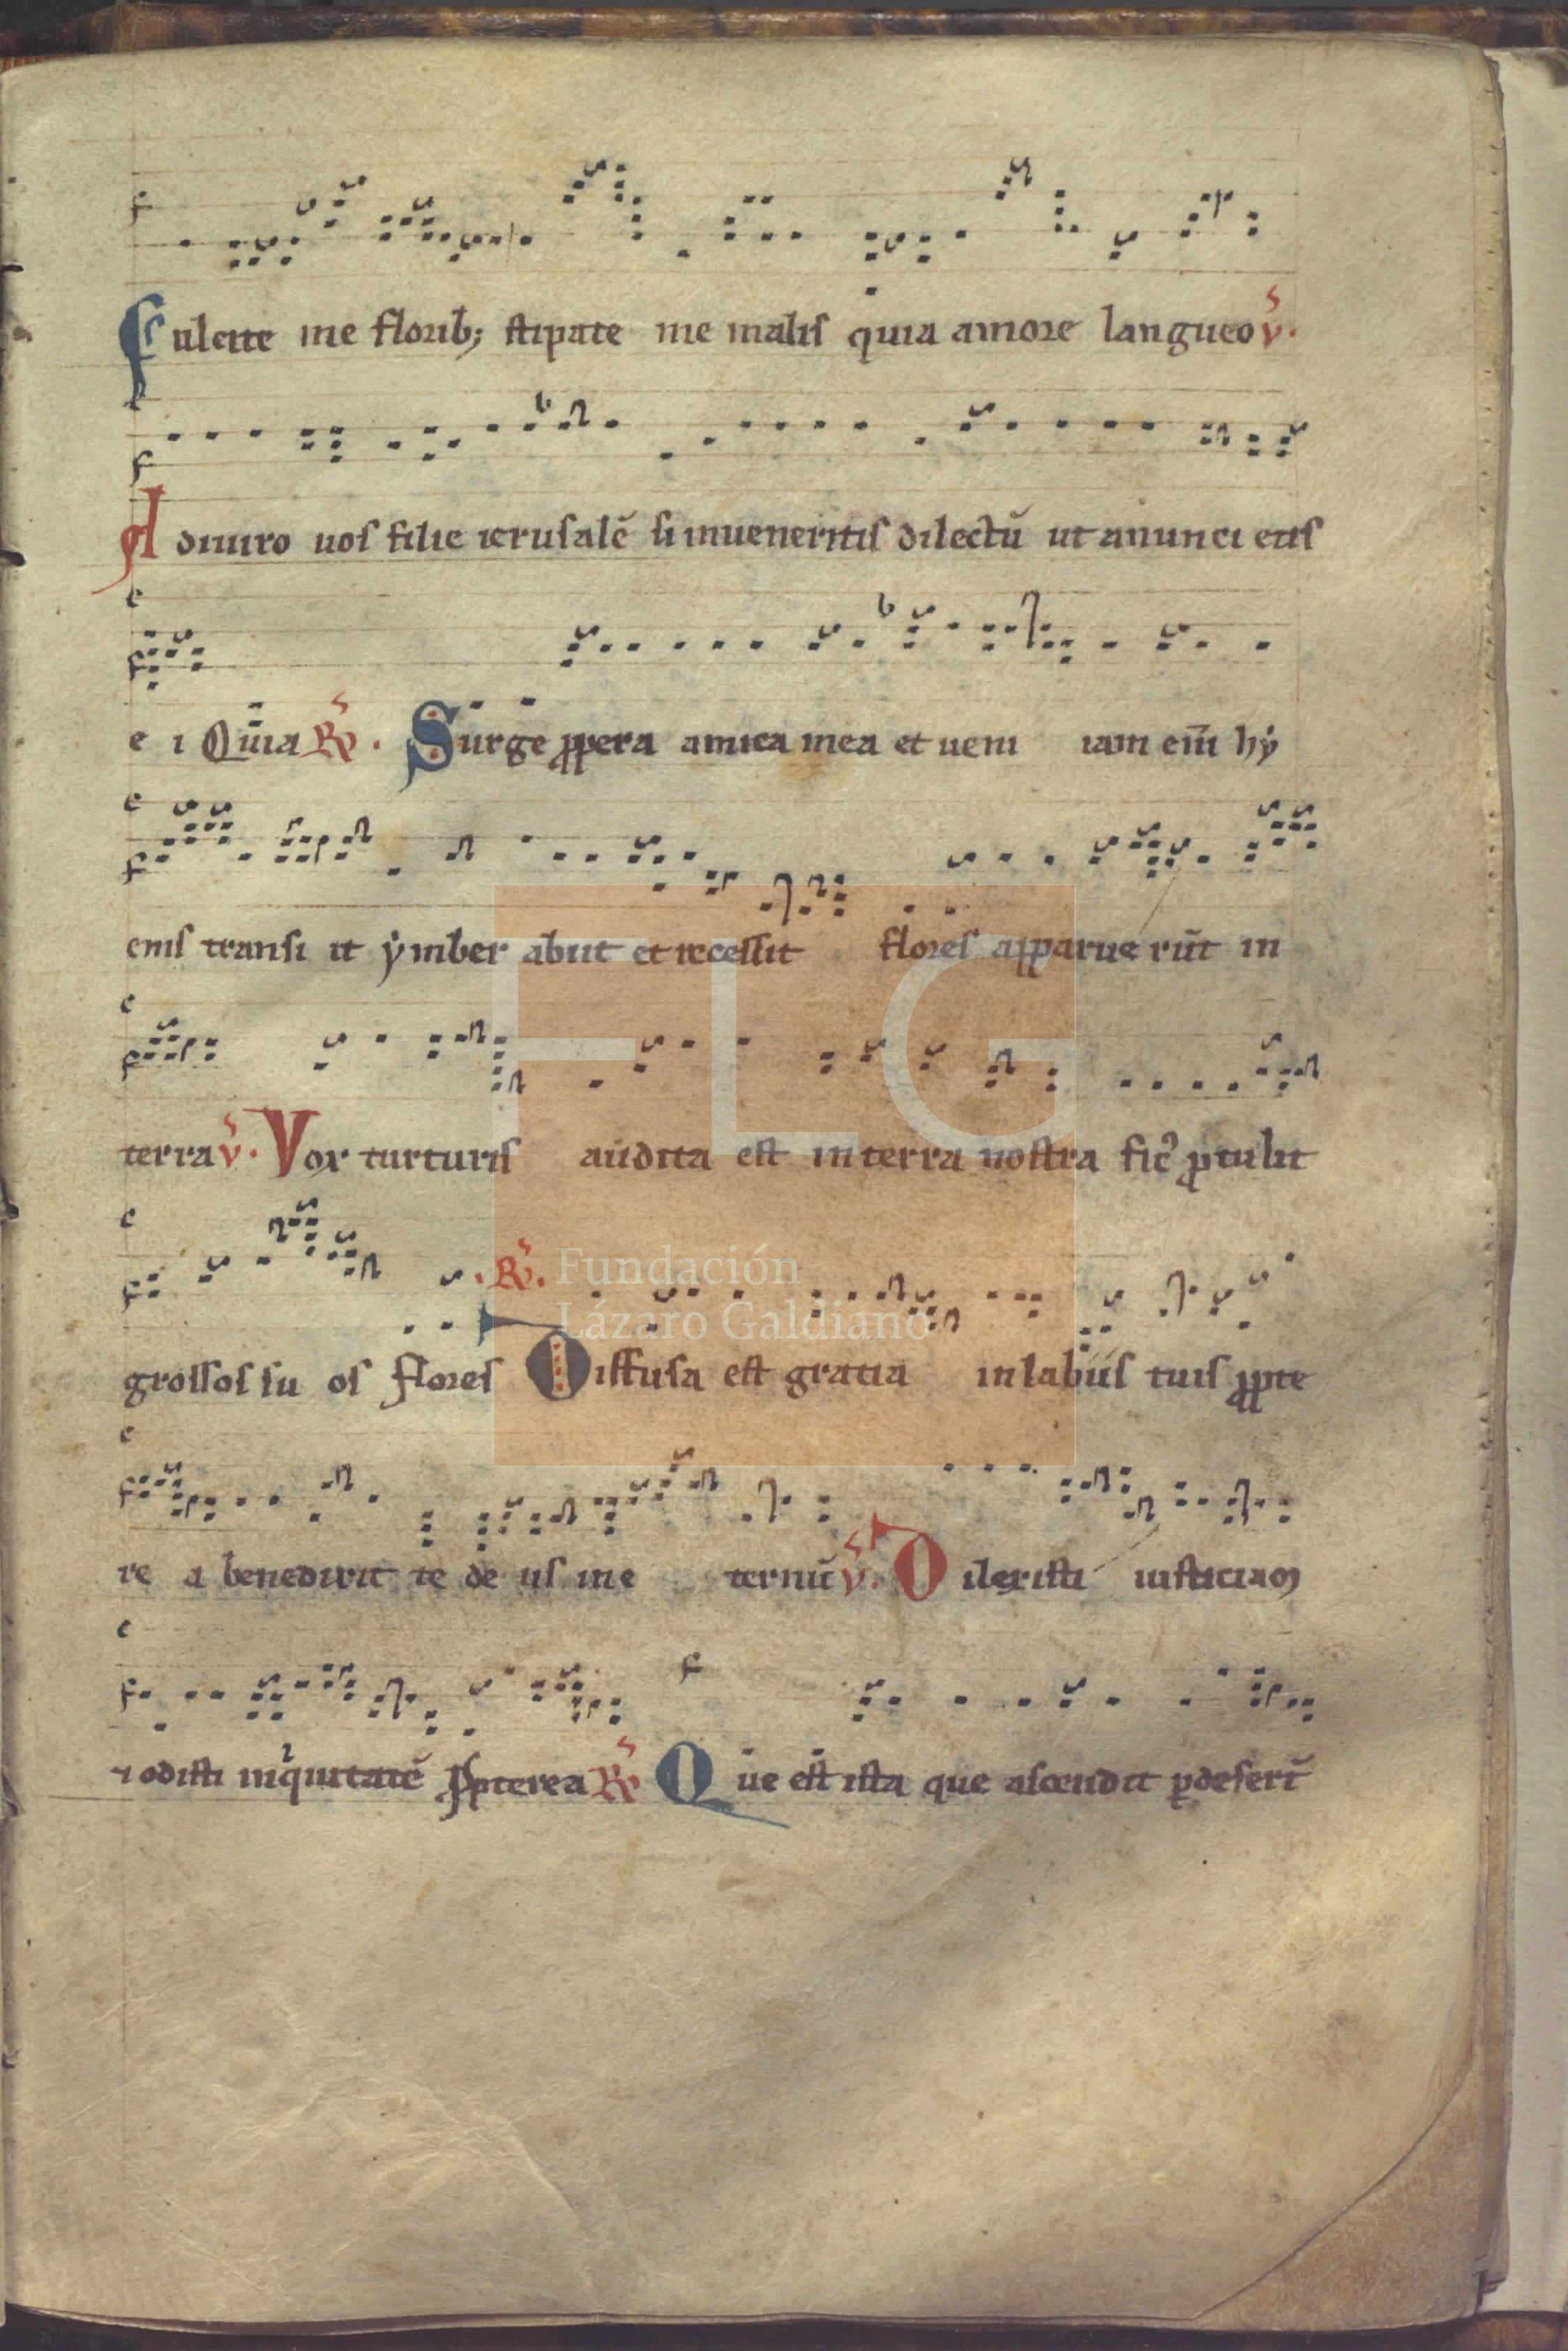 Fulcite me florib; stipate me malis quia amore langueo ℣.
Adiuro uos filie ierusalē si inueneritis dilectū ut anunci etis
e i Quia ℟. Surge ꝓpera amica mea et ueni iam eni̅ hẏ
ems transi it ẏmber abiit et recessit flores apparue rūt in
terra ℣. Vox turturis audita est in terra nostra fic᾽ ꝓtulit
grossos su os flores ℟. Diffusa est gratia in labiis tuis ꝓpte
Fundación
Lázaro Galdiano
re a benedixit te de us in e ternū ℣. Dilexisti iusticiam
⁊ odisti iniq̇uitatē ꝓpterea ℟ Que est ista que ascendit ꝑ desert̄
FLG